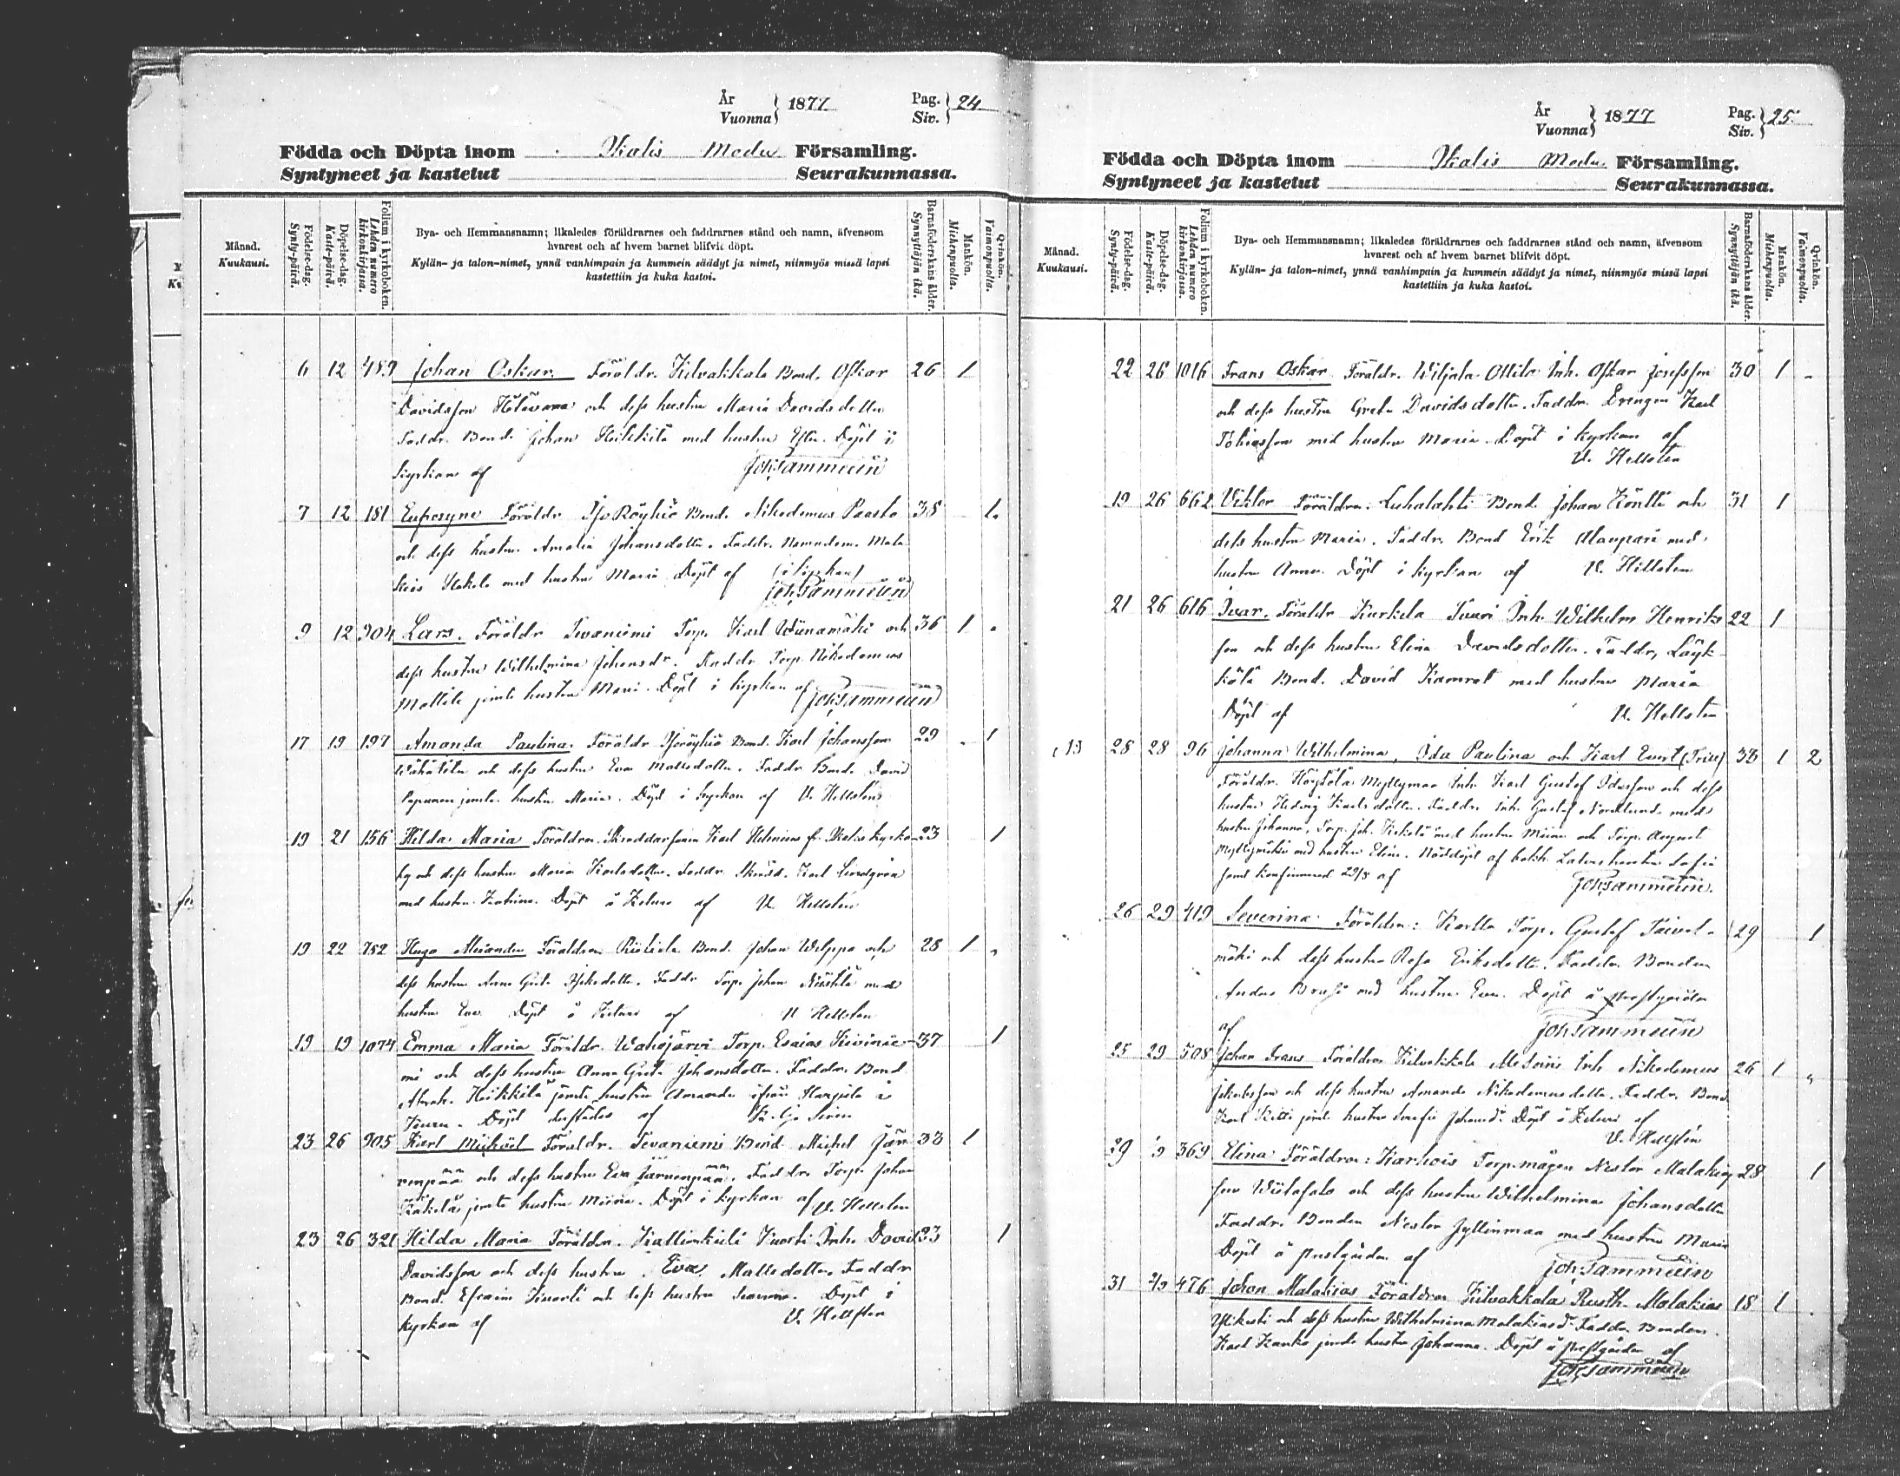 År
Vuonna 1877 Pag. Siv. 24
Födda och Döpta inom Ikalis Moder Församling.
Syntyneet ja kastetut Seurakunnassa.
Månad.
Kuukausi.
Födelse-dag.
Synty-päivä.
Döpelse-dag.
Kaste-päivä.
Folium i kyrkoboken.
Lehden numero kirkonkirjassa.
Bya- och Hemmansnamn; likaledes föräldrarnes och faddrarnes stånd och namn, äfvensom
hvarest och af hvem barnet blifvit döpt.
Kylän- ja talon-nimet, ynnä vanhimpain ja kummein säädyt ja nimet, niinmyös missä lapsi
kastettiin ja kuka kastoi.
Barnaföderskans ålder.
Synnyttäjän ikä.
Mankön.
Miehenpuolia.
Qvinkön.
Vaimonpuolia.
6 12 489 Johan Oskar. Föräldr. Kilvakkala Bond. Oskar 26 1
Davidsson och dess hustru Maria Davidsdotter
Faddr. Bond. Johan Heikkilä med hustru Döpt i
kyrkan af Joh. Sammeliin
7 12 181 Eufrosyne Föräldr. Röyhiö Bond. Nikodemus Paasto 38 1
och dess hustru Amalia Johansdotter. Faddr. Mala
kias med hustru Maria Döpt af (i kyrkan)
Joh. Sammeliin
9 12 904 Lars. Föräldr. Tevaniemi Torp. Karl Wiinamäki och 36 1
dess hustru Wilhelmina Johansdr. Faddr. Torp. Nikodemus
Mattila jemte hustru Maria. Döpt i kyrkan af Joh. Sammeliin
17 19 197 Amanda Paulina. Föräldr. Röyhiö Bond. Karl Johansson 29 1
och dess hustru Eva Mattsdotter. Faddr. Bond. David
Papunen jemte hustru Maria. Döpt i kyrkan af V. Hellsten
19 21 156 Hilda Maria Föräldrar Karl Helenius fr. Ikalis kyrko 23 1
by och dess hustru Maria Karlsdotter. Faddr. Skrädd. Karl Lindgren
med hustru Katrina. Döpt af V. Hellsten
19 22 782 Hugo Alexander Föräldrar Riitiala Bond. Johan Wilppo och 28 1
dess hustru Anna Greta Faddr. Torp. Johan med
hustru Eva Döpt af V. Hellsten
19 19 1074 Emma Maria Föräldr. Wahojärvi Torp. Esaias Kivinie- 37 1
mi och dess hustru Anna Greta Johansdotter. Faddr. Bond
Abrah. Heikkilä jemte hustru Amanda ifrån Harjula i
Döpt af
23 26 905 Karl Mickael Föräldr. Tevaniemi Bond. Michel Jär- 33 1
venpää och dess hustru Eva Järvenpää. Faddr. Torp. Johan
jemte hustru Miina. Döpt i kyrkan af V. Hellsten
23 26 321 Hilda Maria Föräldr. Kallionkieli Kuorti Inh. David 33 1
Davidsson och dess hustru Eva Mattsdotter. Faddr
Bond. Efraim Kuorti och dess hustru Döpt i
kyrkan af V. Hellsten
År
Vuonna 1877 Pag. Siv. 25
Födda och Döpta inom Ikalis Moder Församling.
Syntyneet ja kastetut Seurakunnassa.
Månad.
Kuukausi.
Födelse-dag.
Synty-päivä.
Döpelse-dag.
Kaste-päivä.
Folium i kyrkoboken.
Lehden numero kirkonkirjassa.
Bya- och Hemmansnamn; likaledes föräldrarnes och faddrarnes stånd och namn, äfvensom
hvarest och af hvem barnet blifvit döpt.
Kylän- ja talon-nimet, ynnä vanhimpain ja kummein säädyt ja nimet, niinmyös missä lapsi
kastettiin ja kuka kastoi.
Barnaföderskans ålder.
Synnyttäjän ikä.
Mankön.
Miehenpuolia.
Qvinkön.
Vaimonpuolia.
22 26 1016 Frans Oskar Föräldr. Wiljala Ottila Inh. Oskar Josefsson 30 1
och dess hustru Greta Davidsdotter. Faddr. Drengen Karl
Tobiasson med hustru Maria. Döpt i kyrkan af
V. Hellsten
19 26 662 Viktor Föräldrar: Luhalahti Bond. Johan Könttä och 31 1
dess hustru Maria. Faddr. Bond Erik Alanpää med
hustru Anna. Döpt i kyrkan af V. Hellsten
21 26 616 Ivar. Föräldr. Kurkela Inh. Wilhelm Henriks 22 1
son och dess hustru Elina Davidsdotter. Faddr. Läyk-
kälä Bond. David Kamrat med hustru Maria
Döpt af V. Hellsten
28 28 96 Johanna Wilhelmina, Ida Paulina och Karl Evert 33 1 2
Föräldr. Höytölä Myllymaa Inh. Karl Gustaf och dess
hustru Hedvig Karlsdotter. Faddr. Inh. Gustaf Nordlund med
hustru Johanna, Torp. Joh. med hustru Miina och Torp. August
Myllymäki med hustru Elina. Nöddöpt af
samt konfirmerad 29/8 af Joh. Sammeliin.
26 29 419 Severina Föräldrar: Kartto Torp. Gustaf Taival- 29 1
mäki och dess hustru Rosa Eriksdotter. Faddrar Bonden
Anders med hustru Eva. Döpt å prestgården
af Joh. Sammeliin
25 29 508 Johan Frans Föräldrar Kilvakkala Inh. Nikodemus 26 1
Jakobsson och dess hustru Amanda Nikodemusdotter. Faddr. Bond.
Karl Kitti jemte hustru Sofia Johansd. Döpt af
V. Hellsten
29 369 Elina Föräldrar: Karhois Torp.mågen Nestor Malakias 28 1
son och dess hustru Wilhelmina Johansdotter
Faddr. Bonden Nestor Jyllinmaa med hustru Maria
Döpt å prestgården af Joh. Sammeliin
31 2/9 476 Johan Malakias Föräldrar Kilvakkala Rusth. Malakias 18 1
och dess hustru Wilhelmina Malakiasd. Faddr. Bonden
Karl jemte hustru Johanna. Döpt å prestgården af
Joh. Sammeliin